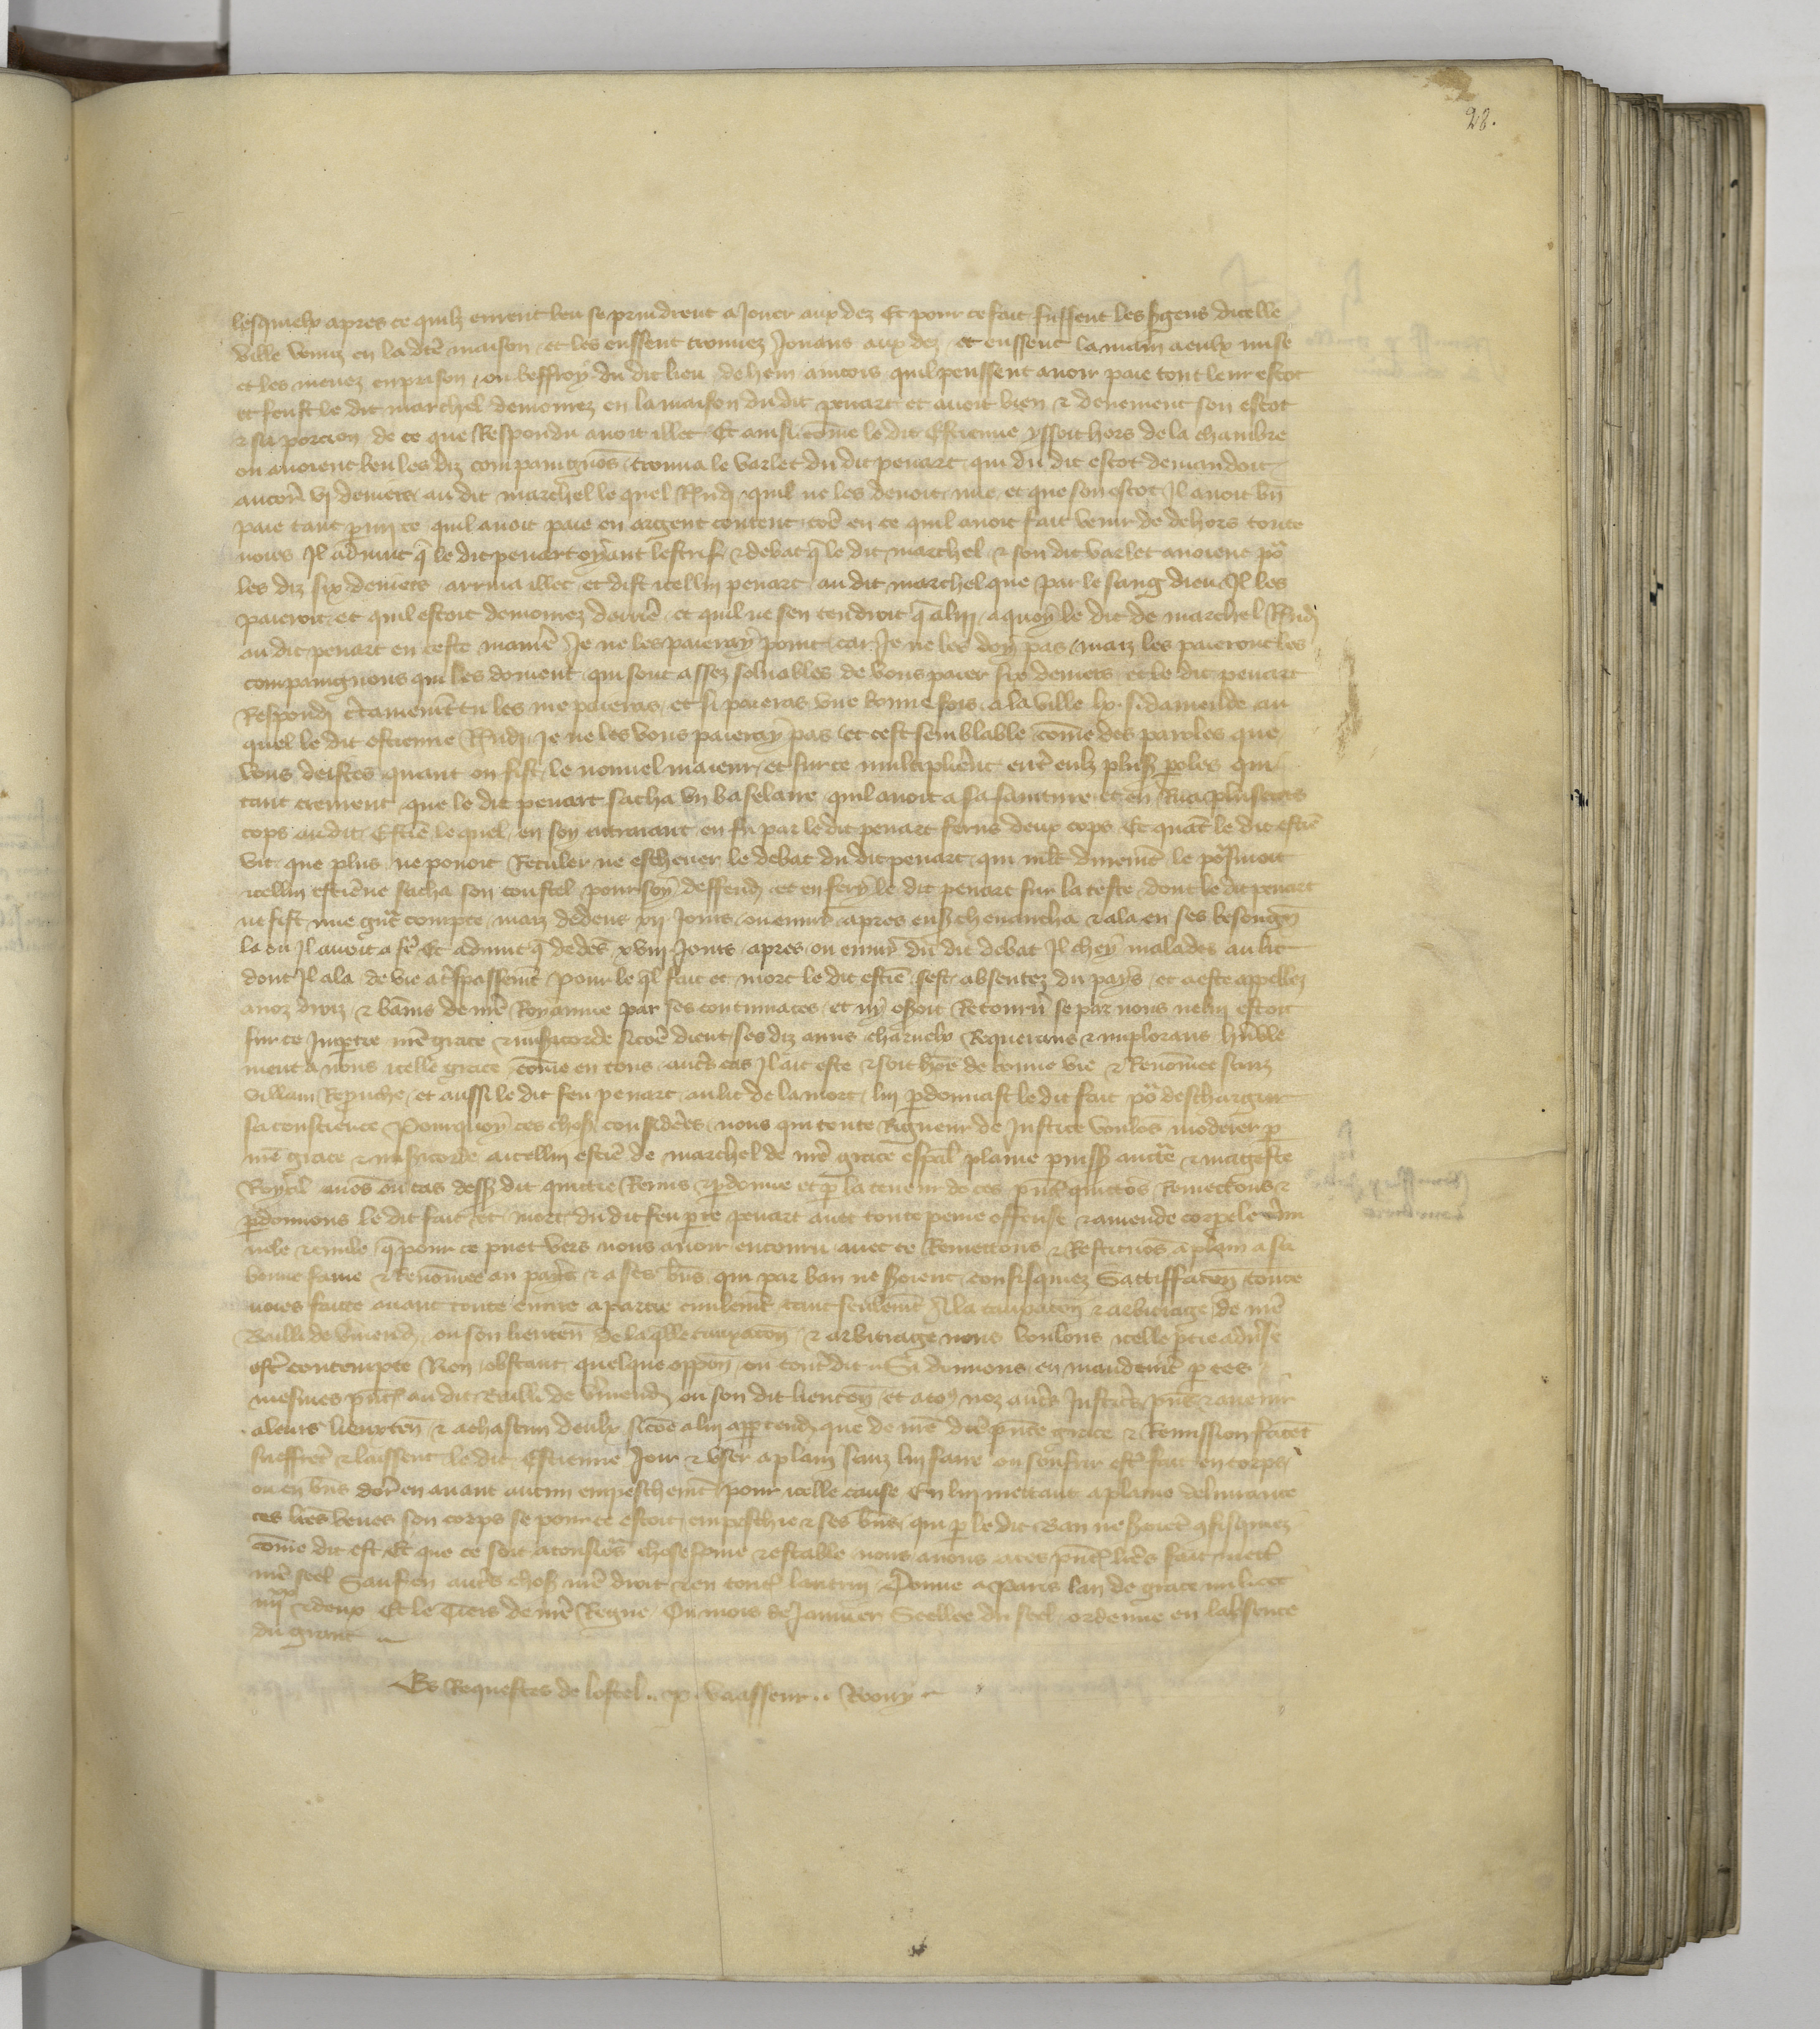 28.
lesquielx apres ce quilz eurent beu se prindrent a Jouer aux dez Et pour ce fait fussent les sgens dicelle
ville venuz en la dcē maison et les eussent trouuez Jouans aux dez et eussent la main a eulx mise
et les menez en prison ou beffroy du dit lieu de hem aincois quil peussent auoir paie tout leur escot
et feust le dit marchel demourez en la maison du dit penart et auoit bien & deuement son escot
& sa porcion de ce que Respondu auoit illec Et ainsi cōme le dit Estienne yssoit hors de la chambre
ou auoient beu les diz compaingnōs trouua le varlet du dit penart qui du dit escot demandoit
vj deniers au dit marchel le quel Rndi quil ne les deuoit mie et que son escot Il auoit bn̄
paie tant pmi ce quil auoit paie en argent content cōe en ce quil auoit fait venir de dehors toute
uoies Il aduint q̄ le dit penart oyant lestrif & debat q̄ le dit marchel & son dit varlet auoient po͛
les diz six deniers arriua illec et dist icellui penart au dit marchel que par le sang dieu Il les
paieroit et quil estoit demourez derrē et quil ne sen tendroit q̄ a lui a quoy le dit de marchel Rndi
au dit penart en ceste maniē Je ne les paieray point car Je ne les doy pas maiz les paieront les
compaingnons qui les doiuent qui sont assez soluables de vous paier six deniers et le dit penart
Respondi c̄tainemēt tu les me paieras et si paieras vne bonne fois a la ville lx. s. damende au
quel le dit estienne Rndi Je ne les vous paieray pas et cest semblable cōme des paroles que
vous deistes quant on fist le nouuel maieur et sur ce multiplierēt entr̄ eulx plus̄ poles qui
tant creurent que le dit penart sacha vn baselaire quil auoit a sa sainture et en Rua pluseurs
cops audit Estiē le quel en soy retraiant en fu par le dit penart ferus deux cops Et quāt le dit estiē
vit que plus ne pouoit Reculer ne escheuer le debat du dit penart qui mlt̄ durement le poursuiuoit
icellui estiēne sacha son coustel pour soy deffendr̄ et en fery le dit penart sur la teste dont le dit penart
ne fist mie gn̄t compte maiz dedens xij Jours ou enuirō apres ens cheuaucha & ala en ses besongn̄
la ou Il auoit a fē Et aduint q̄ dedēs xviij Jours apres ou enuirō du dit debat Il chey malades au lit
dont Il ala de vie a tr̄spassemēt pour le ql̄ fait et mort le dit estiē sest absentez du pays et a este appellez
a noz droiz & bāniz de nrē Royaume par ses contumaces et ny oseroit Retournr̄ se par nous ne lui estoit
sur ce Impertie nrē grace & misicorde sicōe dient ses diz amis charnelx Requerans & implorans humble
ment a nous icelle grace cōme en tous autrēs cas Il ait este & soit hōe de bonne vie & Renōmee sanz
villain Reprouche et aussi le dit feu penart au lit de la mort lui pdonnast le dit fait po͛ deschargier
sa conscience Pourquoy ces chos̄ considerēs nous qui toute Rigueur de Justice voulōs moderer p
nrē grace & misicorde a icellui estiē de marchel de nrē grace espāl plaine puissā auctē & mageste
Royāl auōs ou cas dess̄ dit quittie Remis & pdonne et p la teneur de ces pn̄tes quittōs Remectons &
pdonnons le dit fait et mort du dit feu pre penart auec toute peine offense & amende corpele crim
nele & ciuile q̄ pour ce puet vers nous auoir encouru auec ce Remettons & Restituōs a plain a sa
bonne fame & Renōmee au pays & a ses bns̄ qui par ban ne seroient confisquez Sattiffacon toute
uoies faitte auant toute euure a partie ciuilemēt tant seulemēt A la tauxacon & arbitrage de nrē
Bailli de v̄mendr̄ ou son lieuten̄ de laqlle tauxacon & arbitrage nous voulons icelle ptie aduerse
estr̄ contempte Non obstant quelque oppon̄ ou contr̄dit Si donnons en mandemēt p ces
mesmes pn̄tes au dit Bailli de v̄mendr̄ ou son dit lieuten̄ et a to9 noz autr̄s Justicrs pns̄ & auenir
a leurs lieuxten̄ & a chascun deulx sicōe a lui appartendr̄ que de nrē dcē pn̄te grace & Remission facent
sueffrēt & laissent le dit Estienne Joir & vser a plain sanz lui faire ou souffrir estr̄ fait en corps
ou en bns̄ dores en auant aucun empeschemēt pour icelle cause En lui mettant a plaine deliurance
ces lrēs veues son corps se pour ce estoit empeschie & ses bns̄ qui p le dit Ban ne seroiēt 9fisquiez
cōme dit est Et que ce soit a tousiō͛s chose ferme & estable nous auons a ces pn̄tes lrēs fait mettr̄
nrē seel Sauf en autr̄s chos̄ nrē droit & en toutes lautrui Donne a Paris lan de grace mil ccc
iiijxx & deux Et le Tiers de nrē Regne Ou mois de Januier Seellee du seel ordenne en labsence
du grant
Es Requestes de lostel .. p. vaasseur .. Rouny